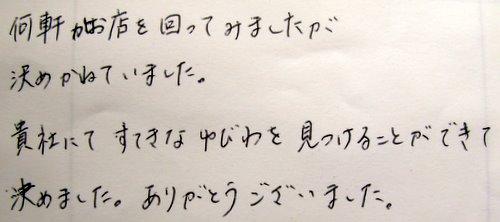 何軒かお店を回ってみましたが
決めかねていました。
貴社にて すてきな ゆびわを 見つけることができて
決めました。ありがとうございました。